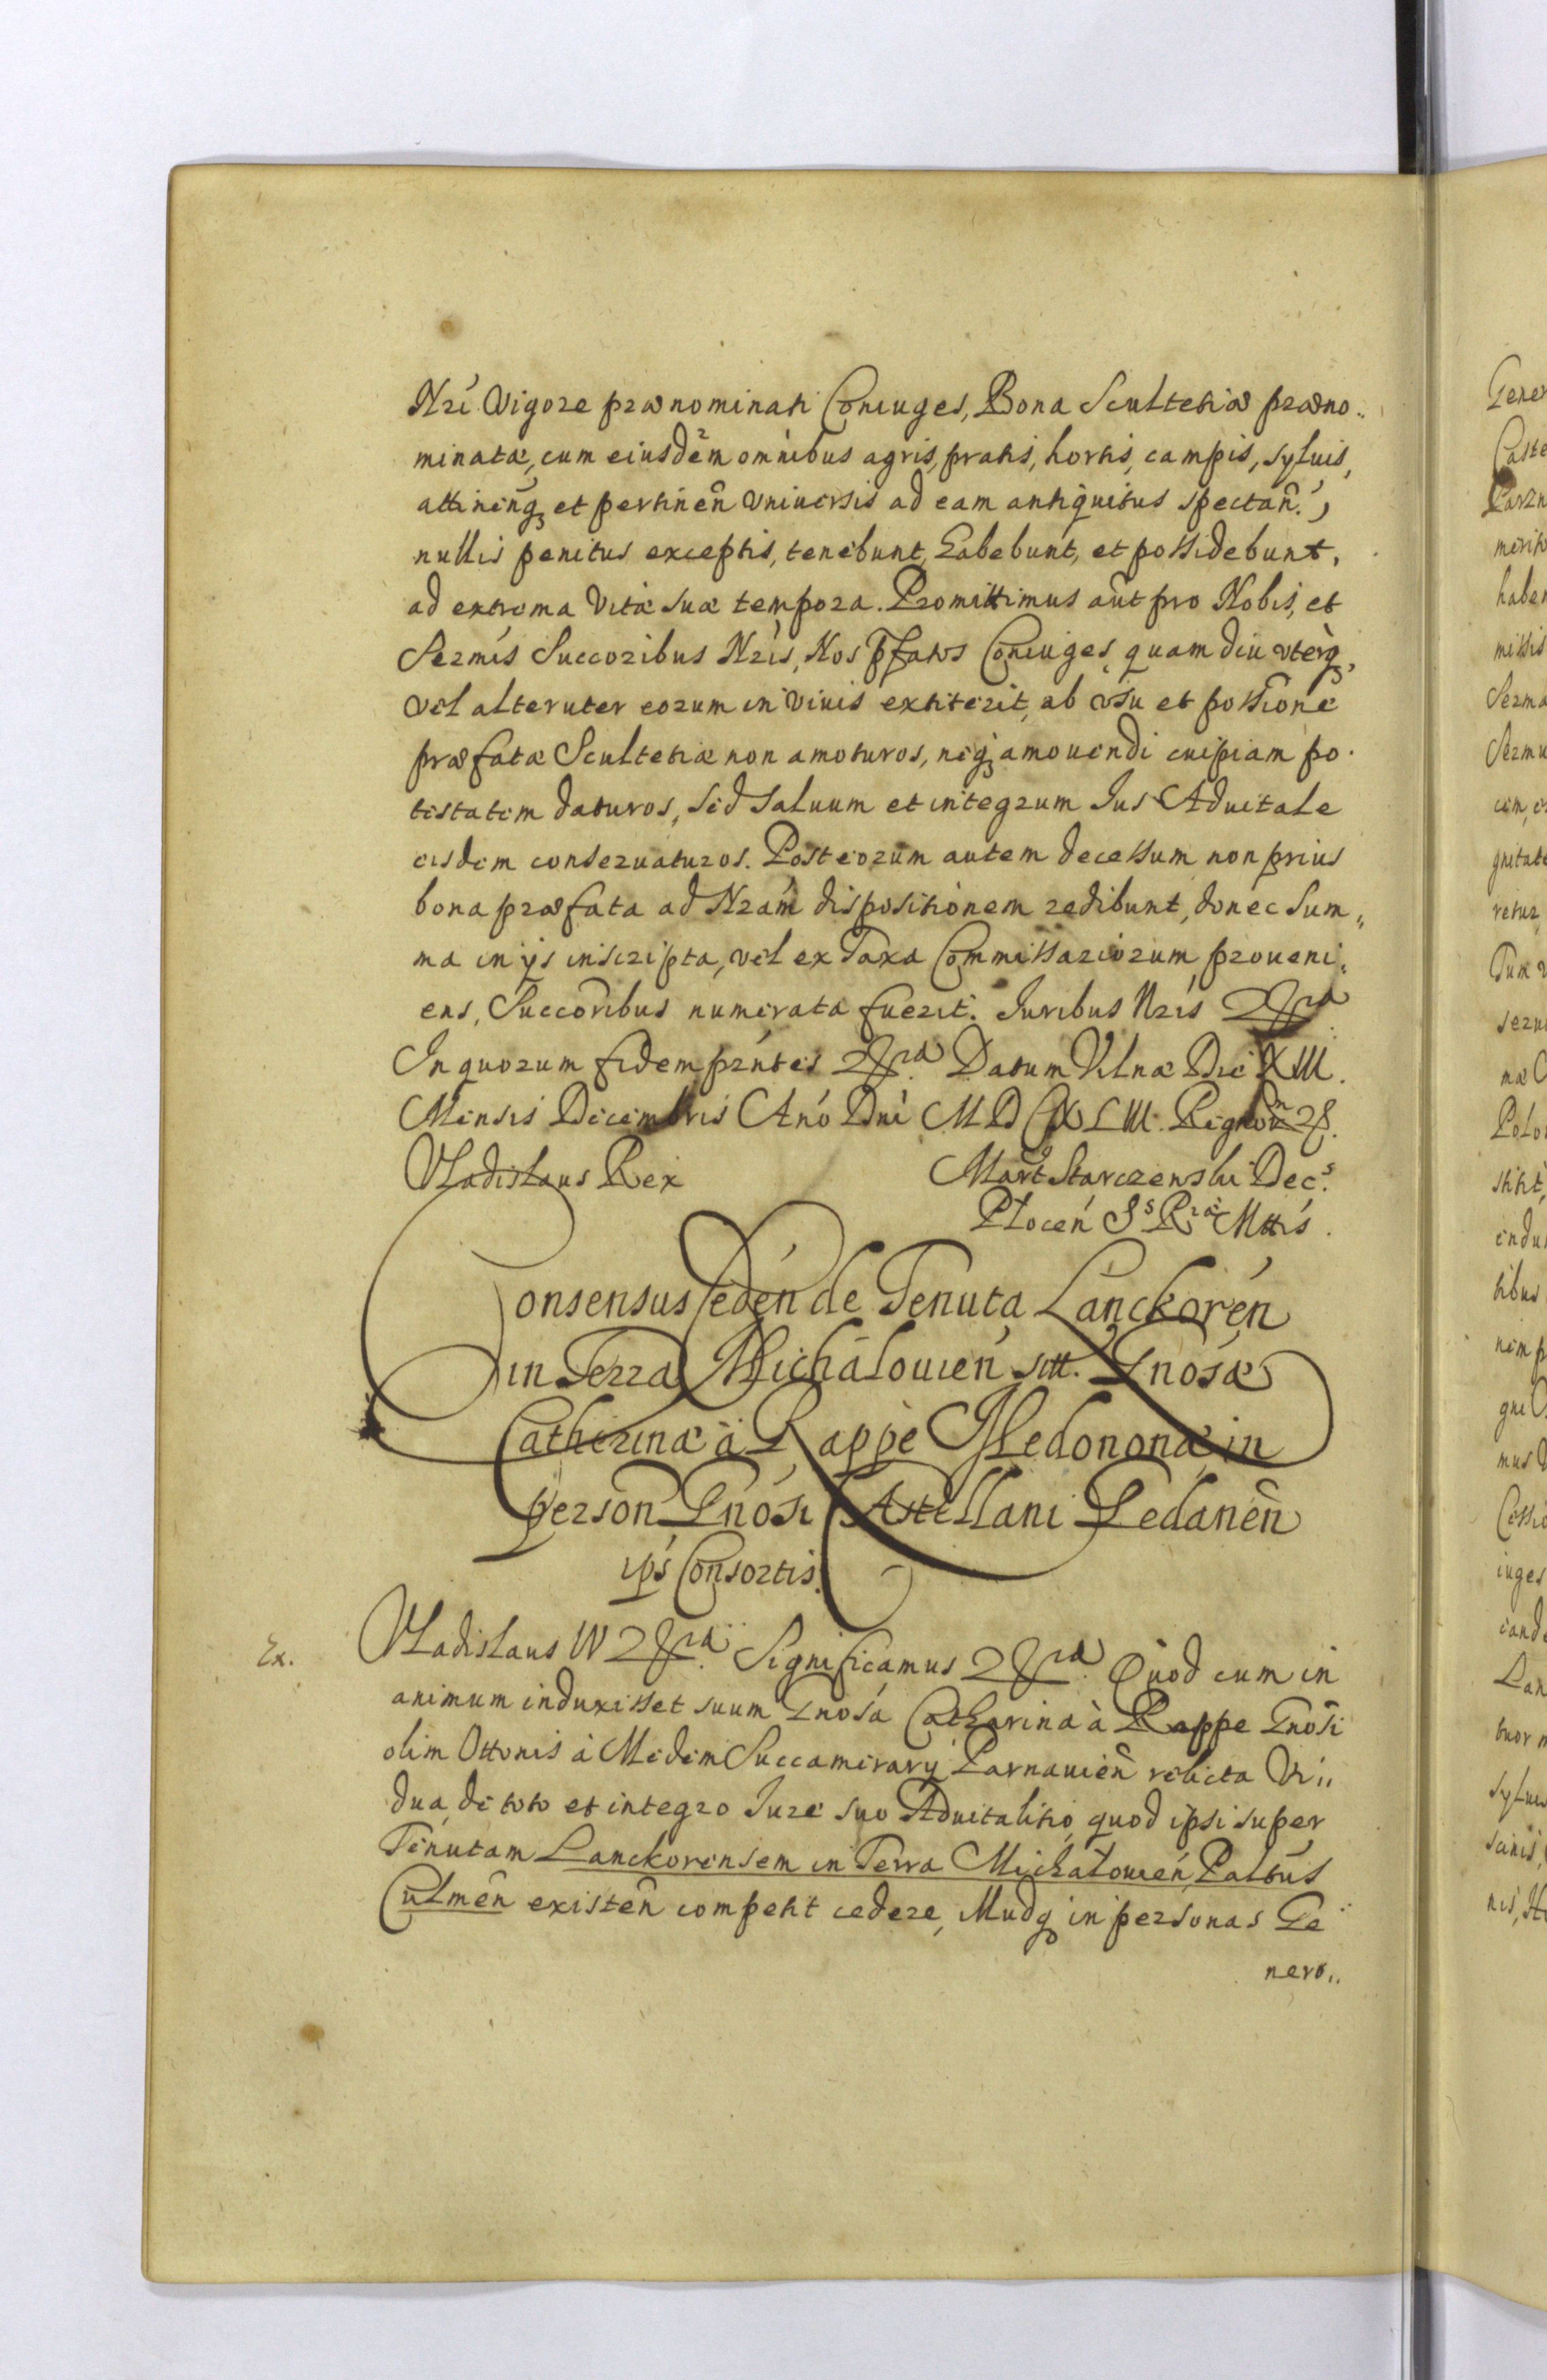 Nrí Vigore prænominati Coniuges, Bona Scultetiæ præno„
minatæ, cum eiusdem omnibus agris, pratis, hortis, campis, syluis,
attinenq3 et pertinen̄ vniuersis ad eam antiquitus spectan̄.,
nullis penitus exceptis, tenebunt, habebunt, et possidebunt,
ad extrema Vitæ suæ tempora. Promittimus aut̄ pro Nobis, et
Sermís Succoribus Nrís, Nos p̄fatos Coniuges, quam diu vterq3,
vel alteruter eorum in viuis extiterit, ab vsu et possione
præfatæ Scultetiæ non amoturos, neq3 amouendi cuipiam po„
testatem daturos, sed saluum et integrum Ius Aduitale
eisdem conseruaturos. Post eorum autem decessum non prius
bona præfata ad Nram dispositionem redibunt, donec Sum„
ma in ijs inscripta, vel ex Taxa Commissariorum proueni„
ens, Succoribus numerata fuerit. Iuribus Nrís &ra
In quorum fidem prn̄tes &ra. Datum Vilnæ Die XIII.
Mensis Decembris Anó Dní MDCXLIII. Regnor̄ &.
Vladislaus Rex Mart Starczenski Dec.s
Plocen̄ Ss Ræ Mttis.
Consensus Ceden̄ de Tenuta Lanckoren̄
in Terra Michałouien̄ sitt. Gnosæ
Catherinæ à Rappe Medononæ in
person̄ Gnosi Castellani Gedanen̄
ips Consortis.
Ex. Vladislaus IV &ra. Significamus &ra. Quod cum in
animum induxisset suum Gnosa Catharina à Rappe Gnosi
olim Ottonis à Medem Succamerarij Parnauien̄ relicta Vi„
dua de toto et integro Iure suo Aduitalitio, quod ipsi super
Tenutam Lanckorensem in Terra Michałouien̄, Paltus
Culmen̄ existen̄ competit cedere, Illudq3 in personas Ge„
nero„